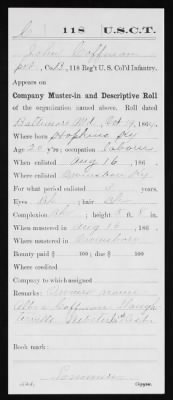 C 118 U.S.C.T.
John Coffman
pvt, Co. B, 118 Reg't U.S. Col'd Infantry.
Appears on
Company Muster-in and Descriptive Roll
of the organization named above. Roll dated
Baltimore Md. Oct 19, 1864.
Where born Hopkins Ky
Age 20 y'rs; occupation labourer
When enlisted Aug 16, 186
Where enlisted Owensboro Ky
For what period enlisted years.
Eyes Blk; hair Blk
Complexion Blk; height 5 ft. 8 in.
When mustered in Aug 16, 186
Where mustered in Owensboro
Bounty paid $ 100; due $ 100
Where credited
Company to which assigned
Remarks: Owners name
Coffman
Webster Co
Book mark:
Copyist.